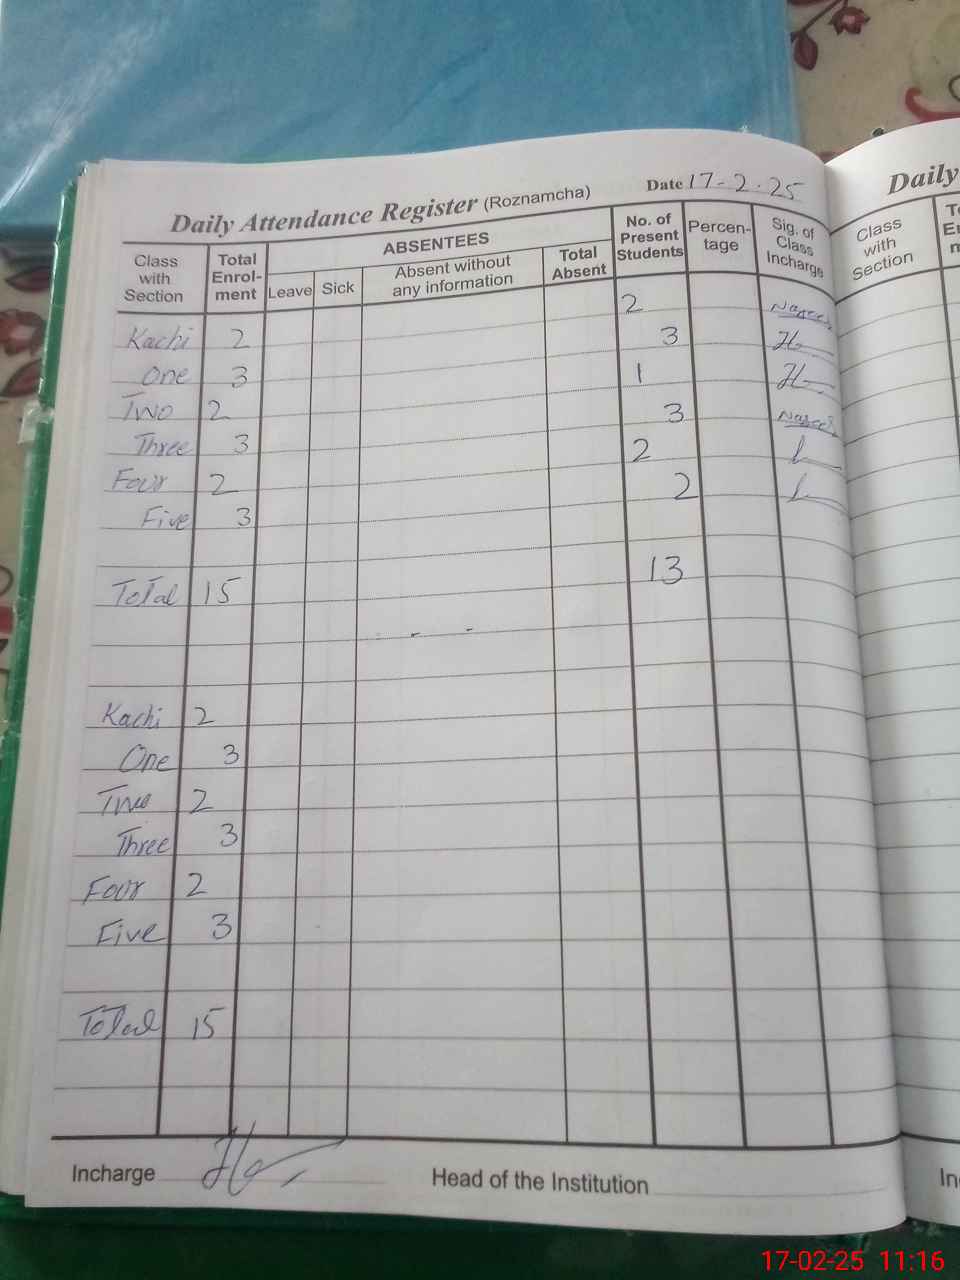 Daily Attendance Register (Roznamcha) Date 17-2-25
Class with Section Total Enrol-ment ABSENTEES Leave Sick Absent without any information Total Absent No. of Present Students Percen-tage Sig. of Class Incharge
Kachi 2 2
One 3 3
Two 2 1
Three 3 3
Four 2 2
Five 3 2
Total 15 13
Kachi 2
One 3
Two 2
Three 3
Four 2
Five 3
Total 15
Incharge Head of the Institution
Daily
Class with Section
In
17-02-25 11:16